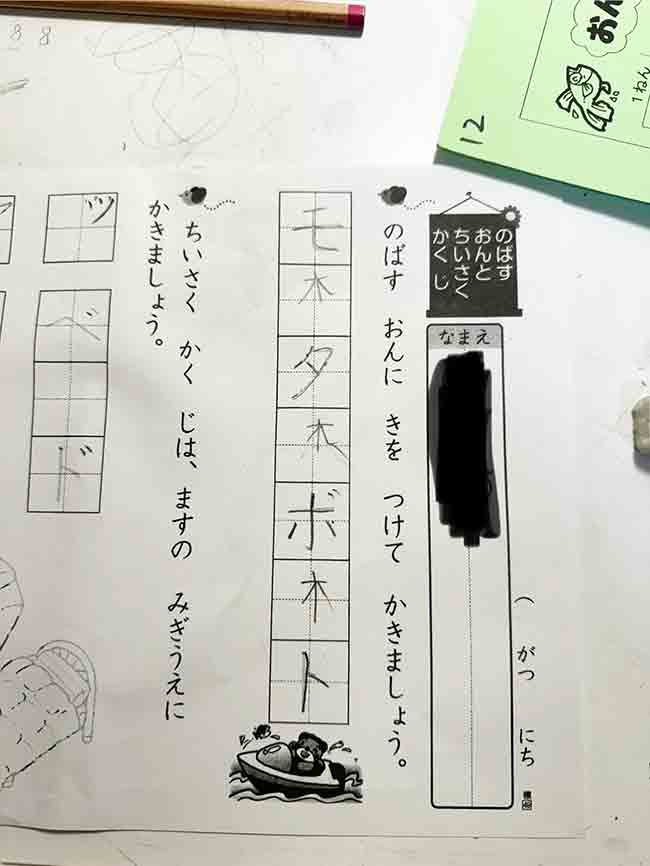 12
1ねん
（　がつ　にち
なまえ
のばす
おんと
ちいさく
かく じ
のばす おんに きを つけて かきましょう。
モ木タ木ボ木ト
ちいさく かく じは、ますの みぎうえに
かきましょう。
ッ
ベ ド
8 8